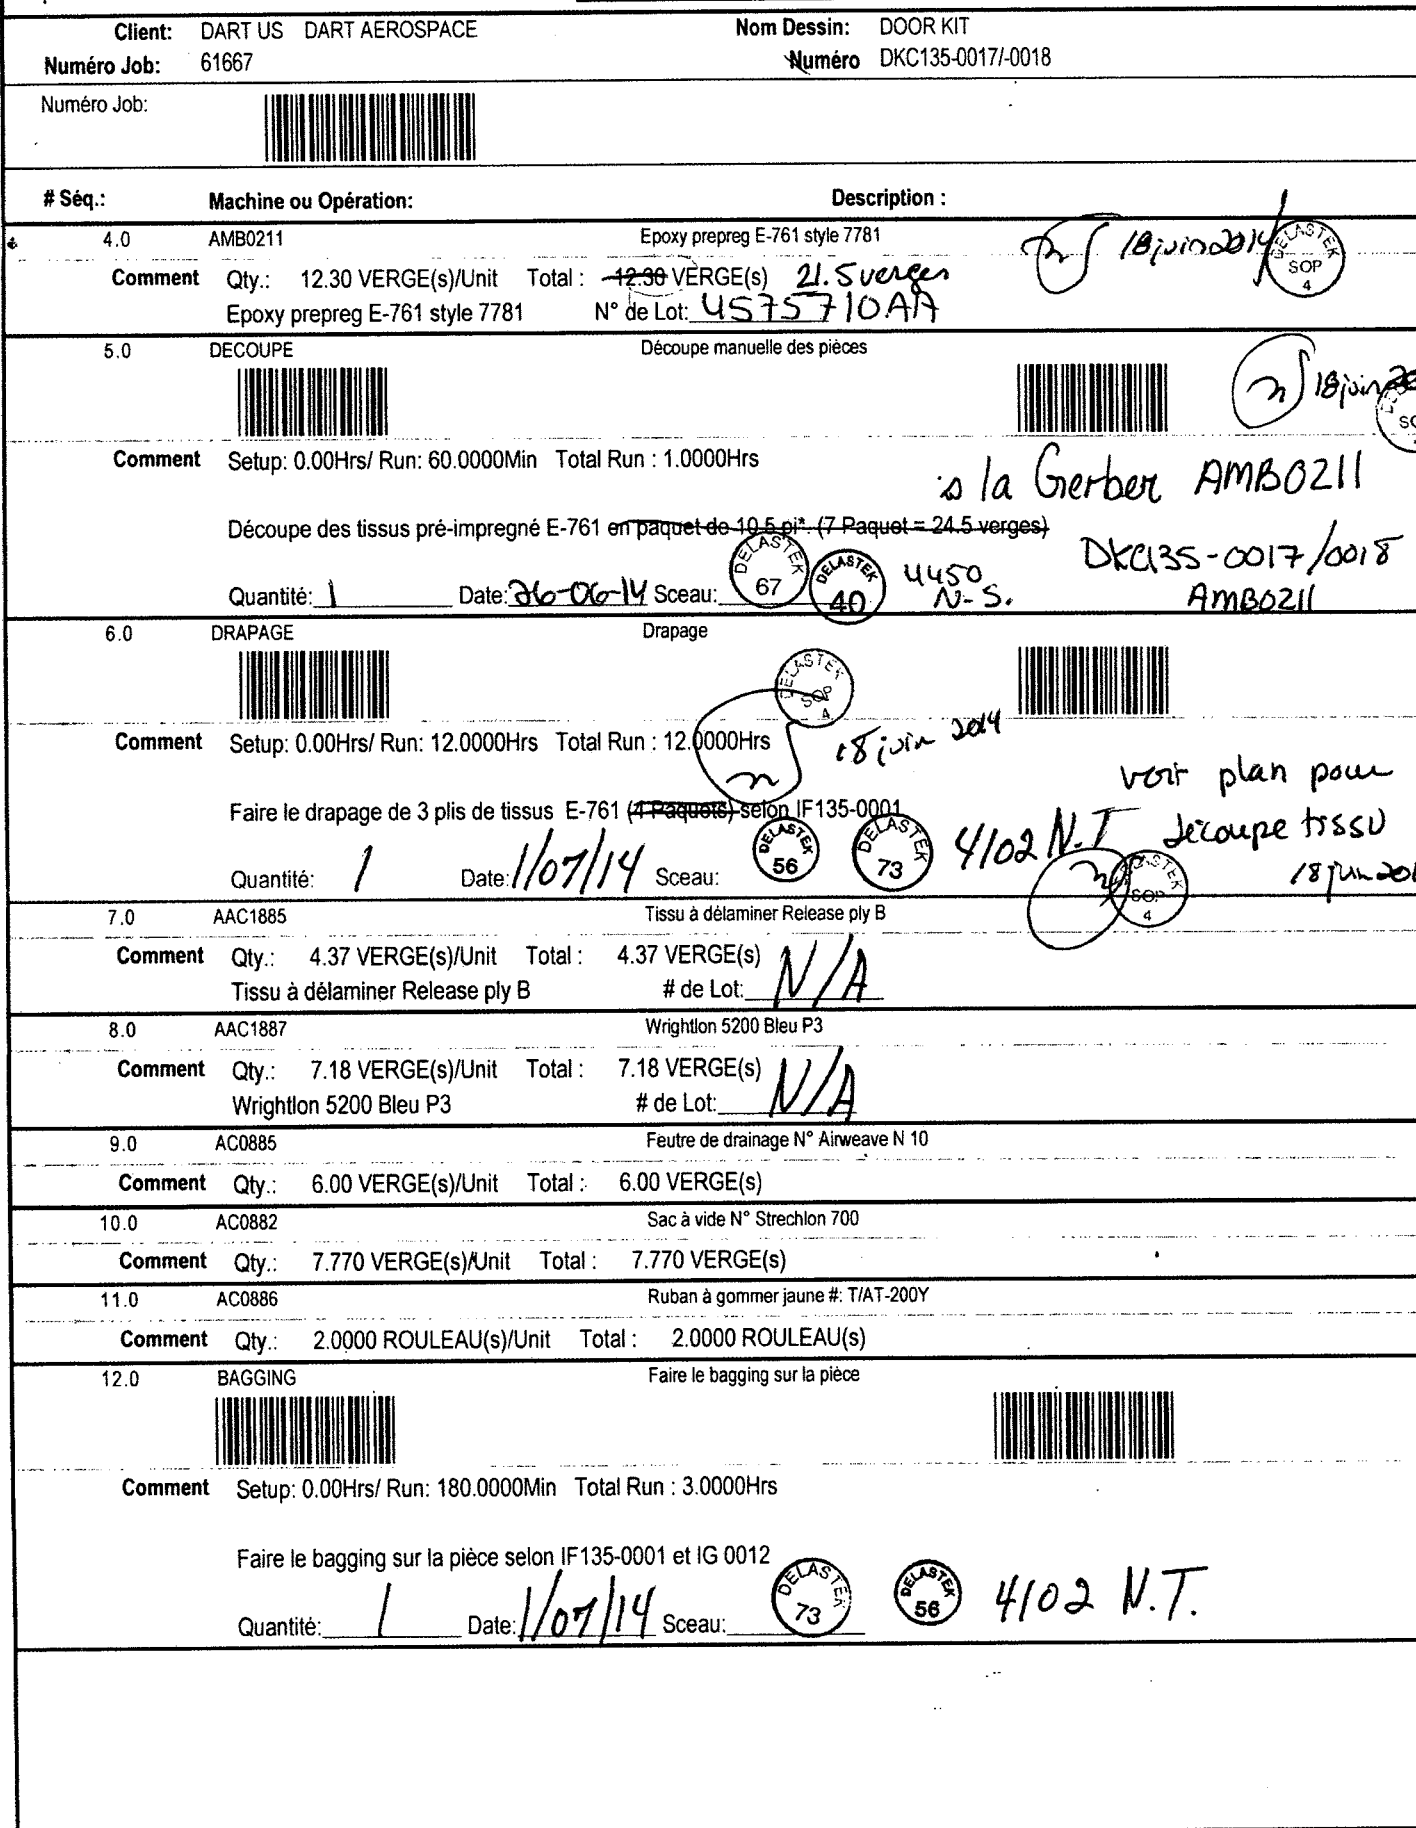 Client: DART US DART AEROSPACE Nom Dessin: DOOR KIT
Numéro Job: 61667 Numéro DKC135-0017/-0018
Numéro Job:
# Séq.: Machine ou Opération: Description :
4.0 AMB0211 Epoxy prepreg E-761 style 7781 18 juin 2014 DELASTEK SOP 4
Comment Qty.: 12.30 VERGE(s)/Unit Total : 12.30 VERGE(s) 21.5 verges
Epoxy prepreg E-761 style 7781 N° de Lot: 4575710AA
5.0 DECOUPE Découpe manuelle des pièces
18 juin
Comment Setup: 0.00Hrs/ Run: 60.0000Min Total Run : 1.0000Hrs
la Gerber AMB0211
Découpe des tissus pré-impregné E-761 en paquet de 10.5 pi*. (7 Paquet = 24.5 verges)
DKC135-0017/0018
Quantité: 1 Date: 26-06-14 Sceau: DELASTEK 67 DELASTEK 40 4450 N-S. AMB0211
6.0 DRAPAGE Drapage
DELASTEK SOP 4
Comment Setup: 0.00Hrs/ Run: 12.0000Hrs Total Run : 12.0000Hrs 18 juin 2014
voir plan pour
Faire le drapage de 3 plis de tissus E-761 (4 Paquets) selon IF135-0001
découpe tissu
Quantité: 1 Date: 1/07/14 Sceau: DELASTEK 56 DELASTEK 73 4102 N.T 18 juin 201
DELASTEK SOP 4
7.0 AAC1885 Tissu à délaminer Release ply B
Comment Qty.: 4.37 VERGE(s)/Unit Total : 4.37 VERGE(s)
Tissu à délaminer Release ply B # de Lot: N/A
8.0 AAC1887 Wrightlon 5200 Bleu P3
Comment Qty.: 7.18 VERGE(s)/Unit Total : 7.18 VERGE(s)
Wrightlon 5200 Bleu P3 # de Lot: N/A
9.0 AC0885 Feutre de drainage N° Airweave N 10
Comment Qty.: 6.00 VERGE(s)/Unit Total : 6.00 VERGE(s)
10.0 AC0882 Sac à vide N° Strechlon 700
Comment Qty.: 7.770 VERGE(s)/Unit Total : 7.770 VERGE(s)
11.0 AC0886 Ruban à gommer jaune #: T/AT-200Y
Comment Qty.: 2.0000 ROULEAU(s)/Unit Total : 2.0000 ROULEAU(s)
12.0 BAGGING Faire le bagging sur la pièce
Comment Setup: 0.00Hrs/ Run: 180.0000Min Total Run : 3.0000Hrs
Faire le bagging sur la pièce selon IF135-0001 et IG 0012
Quantité: 1 Date: 1/07/14 Sceau: DELASTEK 73 DELASTEK 56 4102 N.T.